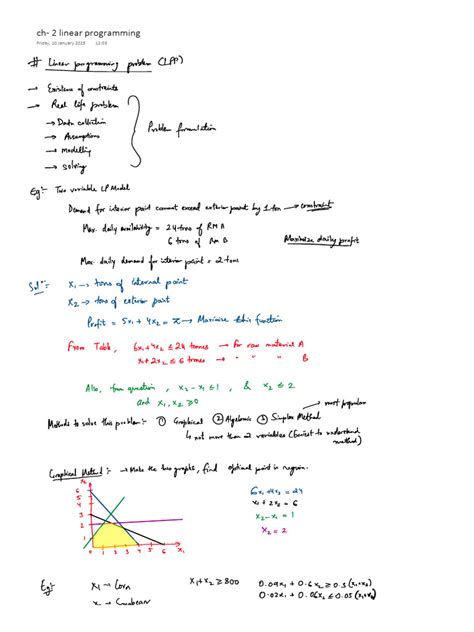 ch- 2 linear programming
Friday, 10 January 2025 12:03
# Linear programming problem (LPP)
→ Existence of constraints
→ Real life problem
→ Data collection
→ Assumptions
→ Modelling
→ Solving
Problem formulation
Eg:- Two variable LP Model
Demand for interior paint cannot exceed exterior paint by 1 ton → constraint
Max. daily availability = 24 tons of RM A
6 tons of RM B
Maximize daily profit
Max. daily demand for interior paint = 2 tons
Sol":- x₁ → tons of internal paint
x₂ → tons of exterior paint
Profit = 5x₁ + 4x₂ = z → Maximise this function
From Table, 6x₁+4x₂ ≤ 24 tonnes → for raw material A
x₁+2x₂ ≤ 6 tonnes → " " " B
Also, from question, x₂-x₁ ≤ 1, & x₂ ≤ 2
and x₁, x₂ ≥ 0
most popular
Methods to solve this problem:- ① Graphical ② Algebraic ③ Simplex Method
↳ not more than 2 variables (Easiest to understand method)
Graphical Method:- → Make the two graphs, find optimal point in region.
x₂
6
5
4
3
2
1
0 1 2 3 4 5 6 x₁
6x₁+4x₂ = 24
x₁ + 2x₂ = 6
x₂-x₁ = 1
x₂ = 2
Eg:- x₁ → Corn x₁+x₂ ≥ 800 0.09x₁ + 0.6x₂ ≥ 0.3(x₁+x₂)
0.02x₁ + 0.06x₂ ≤ 0.05(x₁+x₂)